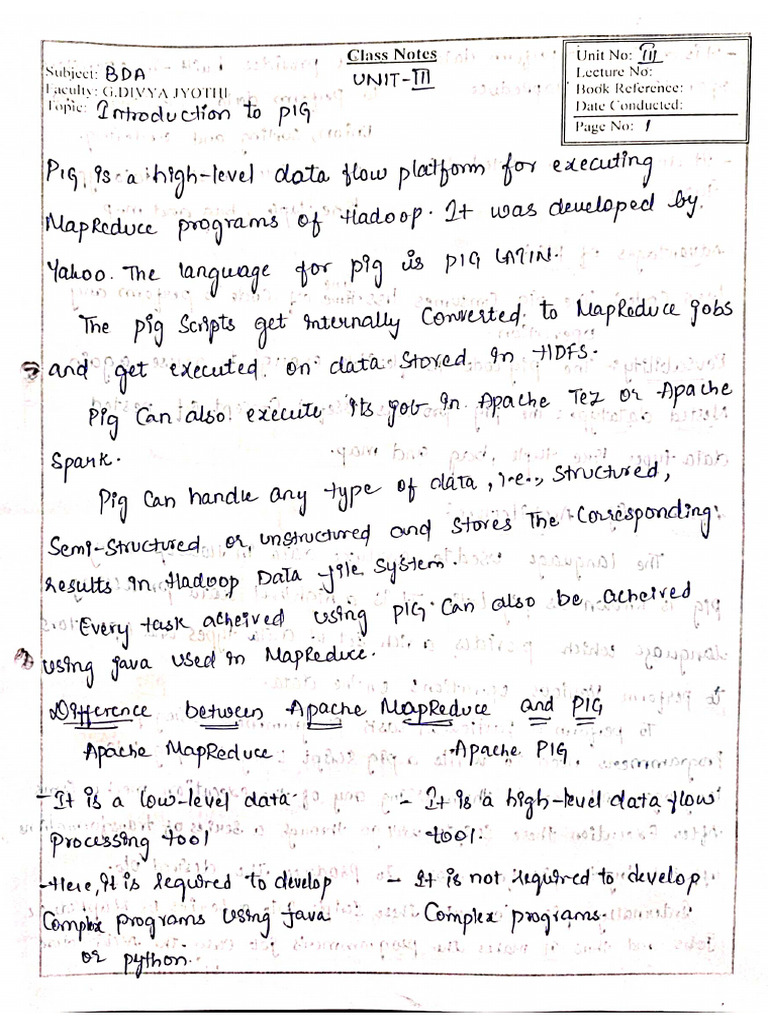 Class Notes
Subject: BDA
UNIT-III
Faculty: G.DIVYA JYOTHI
Topic: Introduction to PIG
Unit No: III
Lecture No:
Book Reference:
Date Conducted:
Page No: 1
PIG is a high-level data flow platform for executing
MapReduce programs of Hadoop. It was developed by
Yahoo. The language for pig is PIG LATIN.
The pig Scripts get internally Converted to MapReduce jobs
and get executed on data Stored in HDFS.
Pig Can also execute its job in Apache Tez or Apache
Spark.
Pig Can handle any type of data, i.e., Structured,
Semi-Structured or unstructured and stores The Corresponding
results in Hadoop Data file System.
Every task acheived using PIG Can also be acheived
using java used in MapReduce.
Difference between Apache MapReduce and PIG
Apache MapReduce Apache PIG.
- It is a low-level data - It is a high-level data flow
processing tool tool.
- Here, it is required to develop - It is not required to develop
Complex programs using Java Complex programs.
or python.